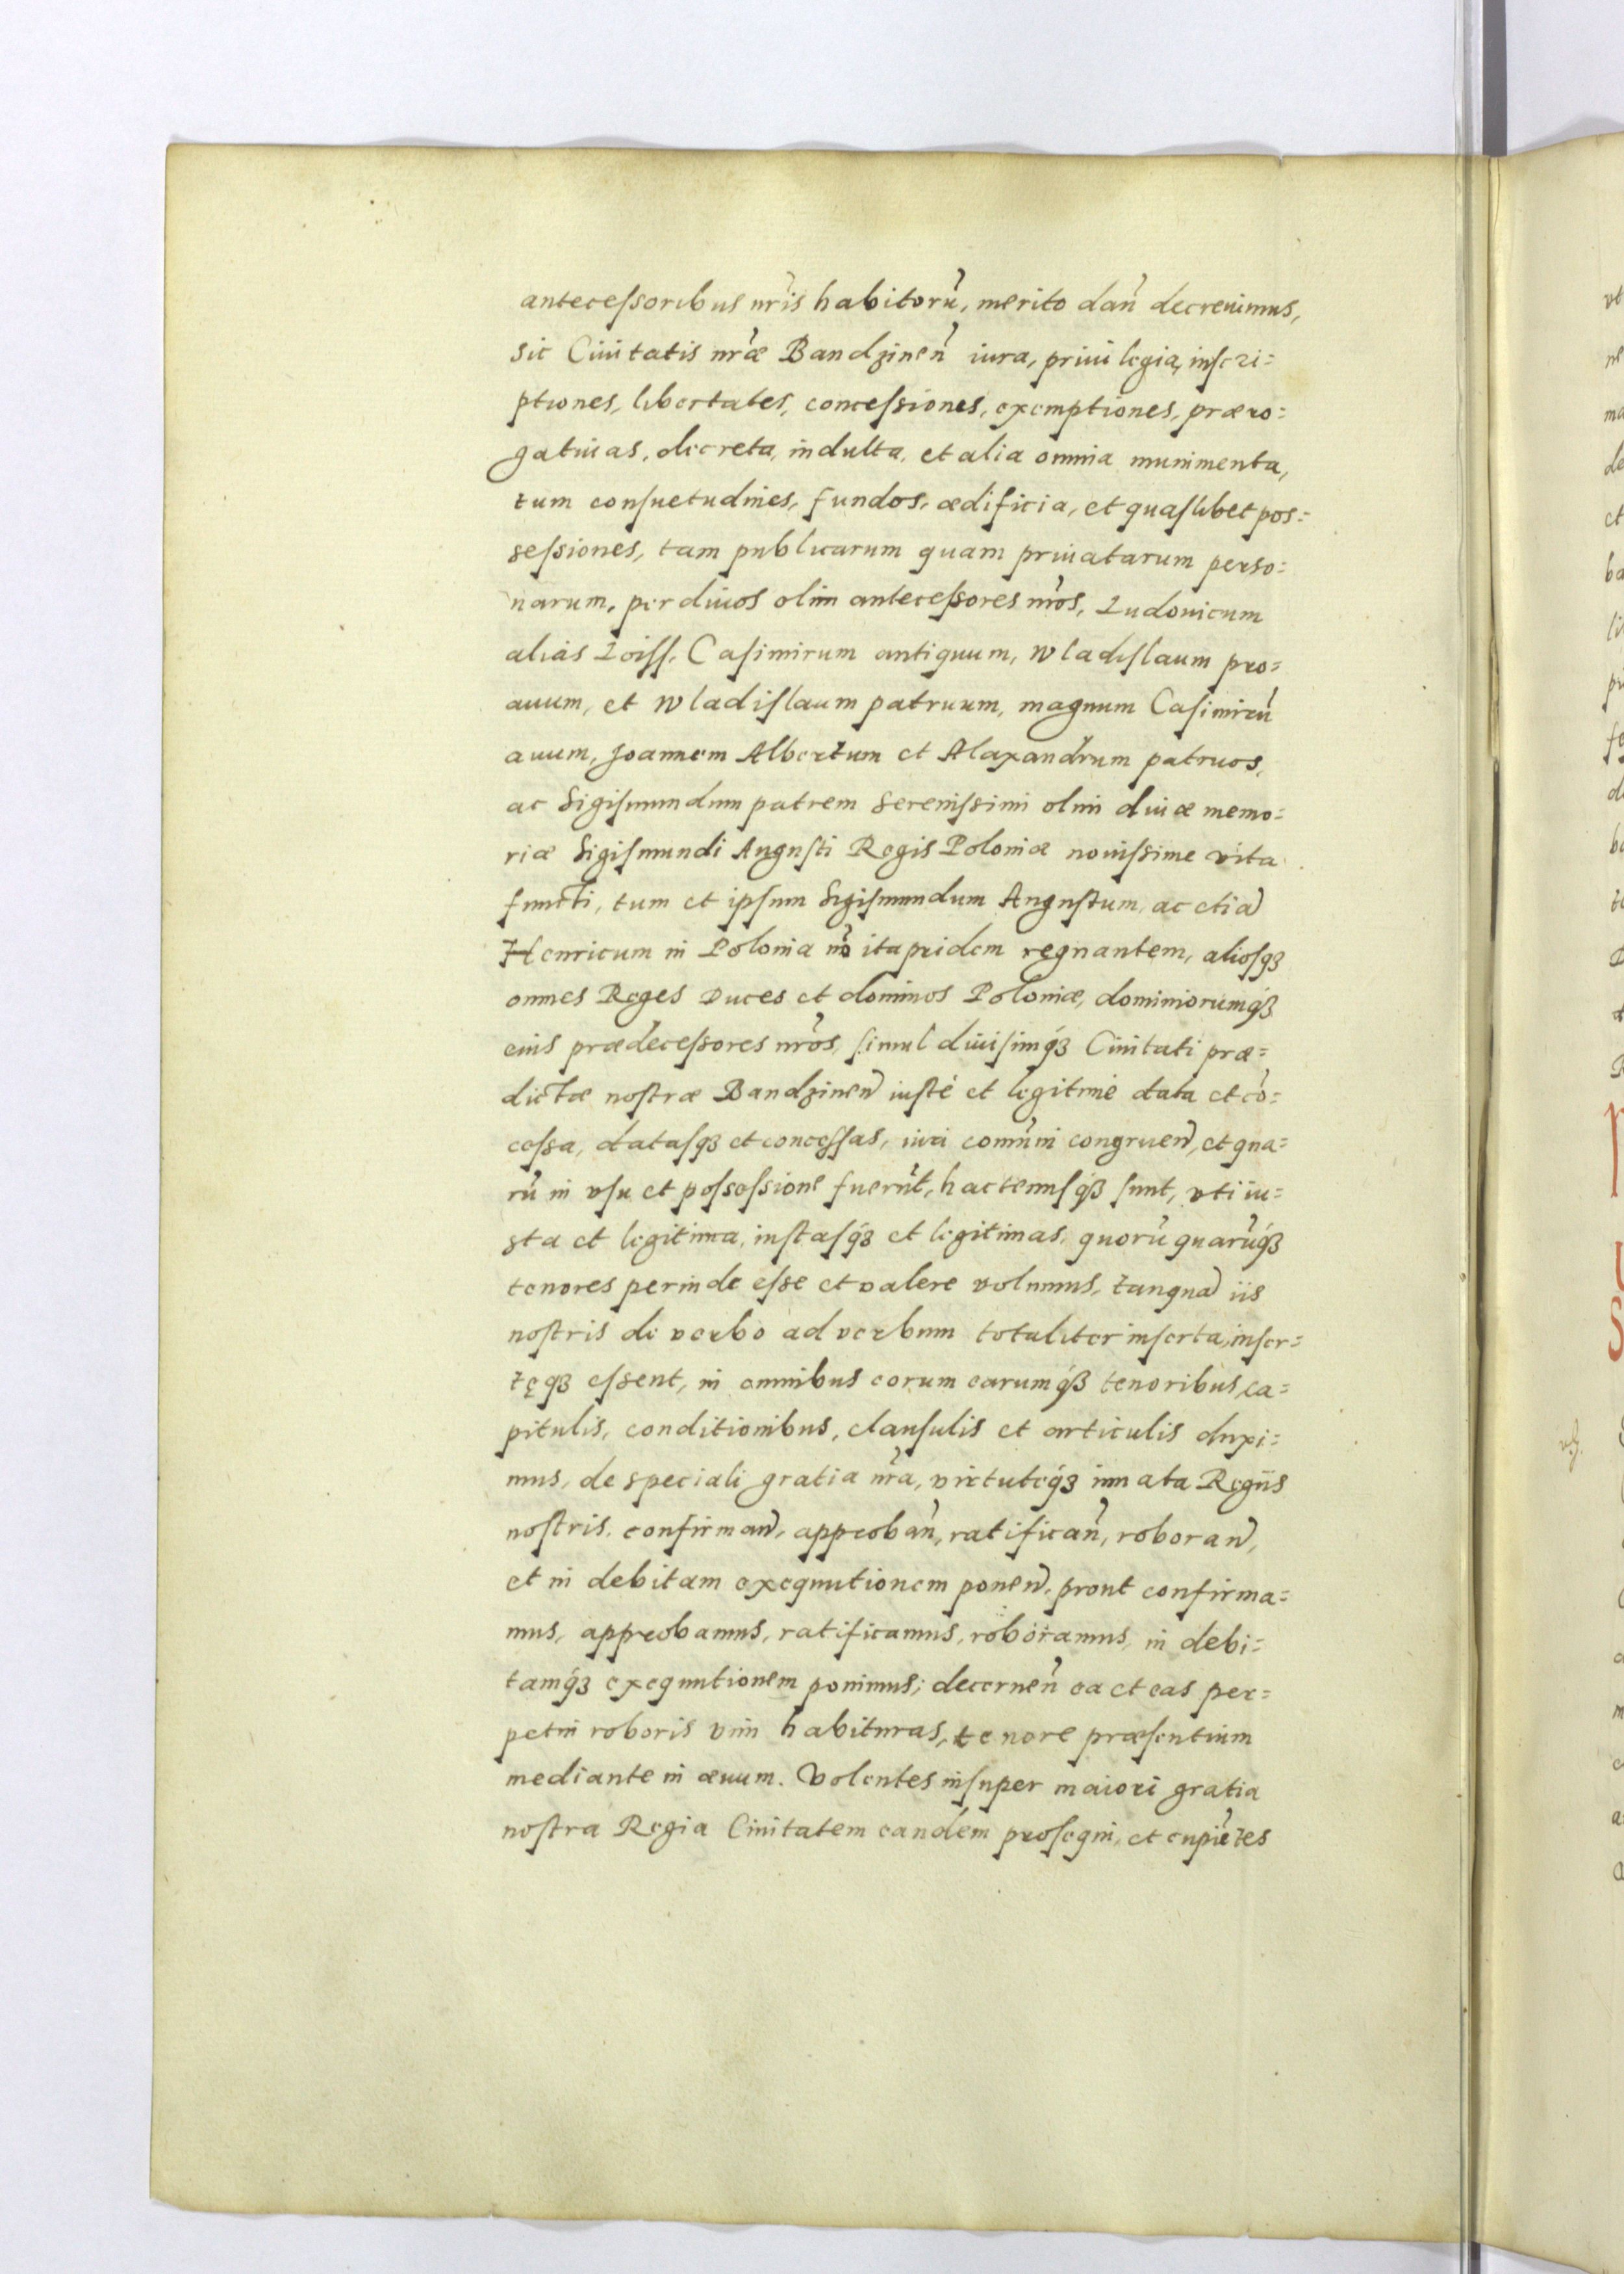 antecessoribus nr̃is habitorũ, merito dañ decreuimus,
sic Ciuitatis nr̃æ Bandzineñ iura, priuilegia, inscri=
ptiones, libertates, concessiones, exemptiones, præro=
gatiuas, decreta, indulta, et alia omnia munimenta,
tum consuetudines, fundos, ædificia, et quaslibet pos=
sessiones, tam publicarum quam priuatarum perso=
narum, per diuos olim antecessores nr̃os, Ludouicum
aliàs Loiss, Casimirum antiquum, Wladislaum pro=
auum, et Wladislaum patruum, magnum Casimirũ
auum, Joannem Albertum et Alaxandrum patruos,
ac Sigismundum patrem serenissimi olim diuæ memo=
riæ Sigismundi Augusti Regis Poloniæ nouissime vita
functi, tum et ipsum Sigismundum Augustum, ac etiã
Henricum in Polonia nõ ita pridem regnantem, aliosqꝫ
omnes Reges Duces et dominos Poloniæ, dominiorumqꝫ
eius prædecessores nr̃os, simul diuisimqꝫ Ciuitati præ=
dictæ nostræ Bandzineñ iustè et legitimè data et cõ=
cessa, datasqꝫ et concessas, iuri comũni congrueñ, et qua=
rũ in vsu et possessione fuerũt, hactenusqꝫ sunt, vti iu=
sta et legitima, iustasqꝫ et legitimas, quorũ quarũqꝫ
tenores perinde esse et valere volumus, tanquã iis
nostris de verbo ad verbum totaliter inserta, inser=
tęqꝫ essent, in omnibus eorum earumqꝫ tenoribus, ca=
pitulis, conditionibus, clausulis et articulis duxi=
mus, de speciali gratia nr̃a, virtuteqꝫ innata Regiis
nostris, confirmañ, approbañ, ratificañ, roborañ,
et in debitam exequutionem poneñ, prout confirma=
mus, approbamus, ratificamus, roboramus, in debi=
tamqꝫ exequutionem ponimus; decerneñ ea et eas per=
petui roboris vim habituras, tenore præsentium
mediante in æuum. Volentes insuper maiori gratia
nostra Regia Ciuitatem eandem prosequi, et cupiẽtes